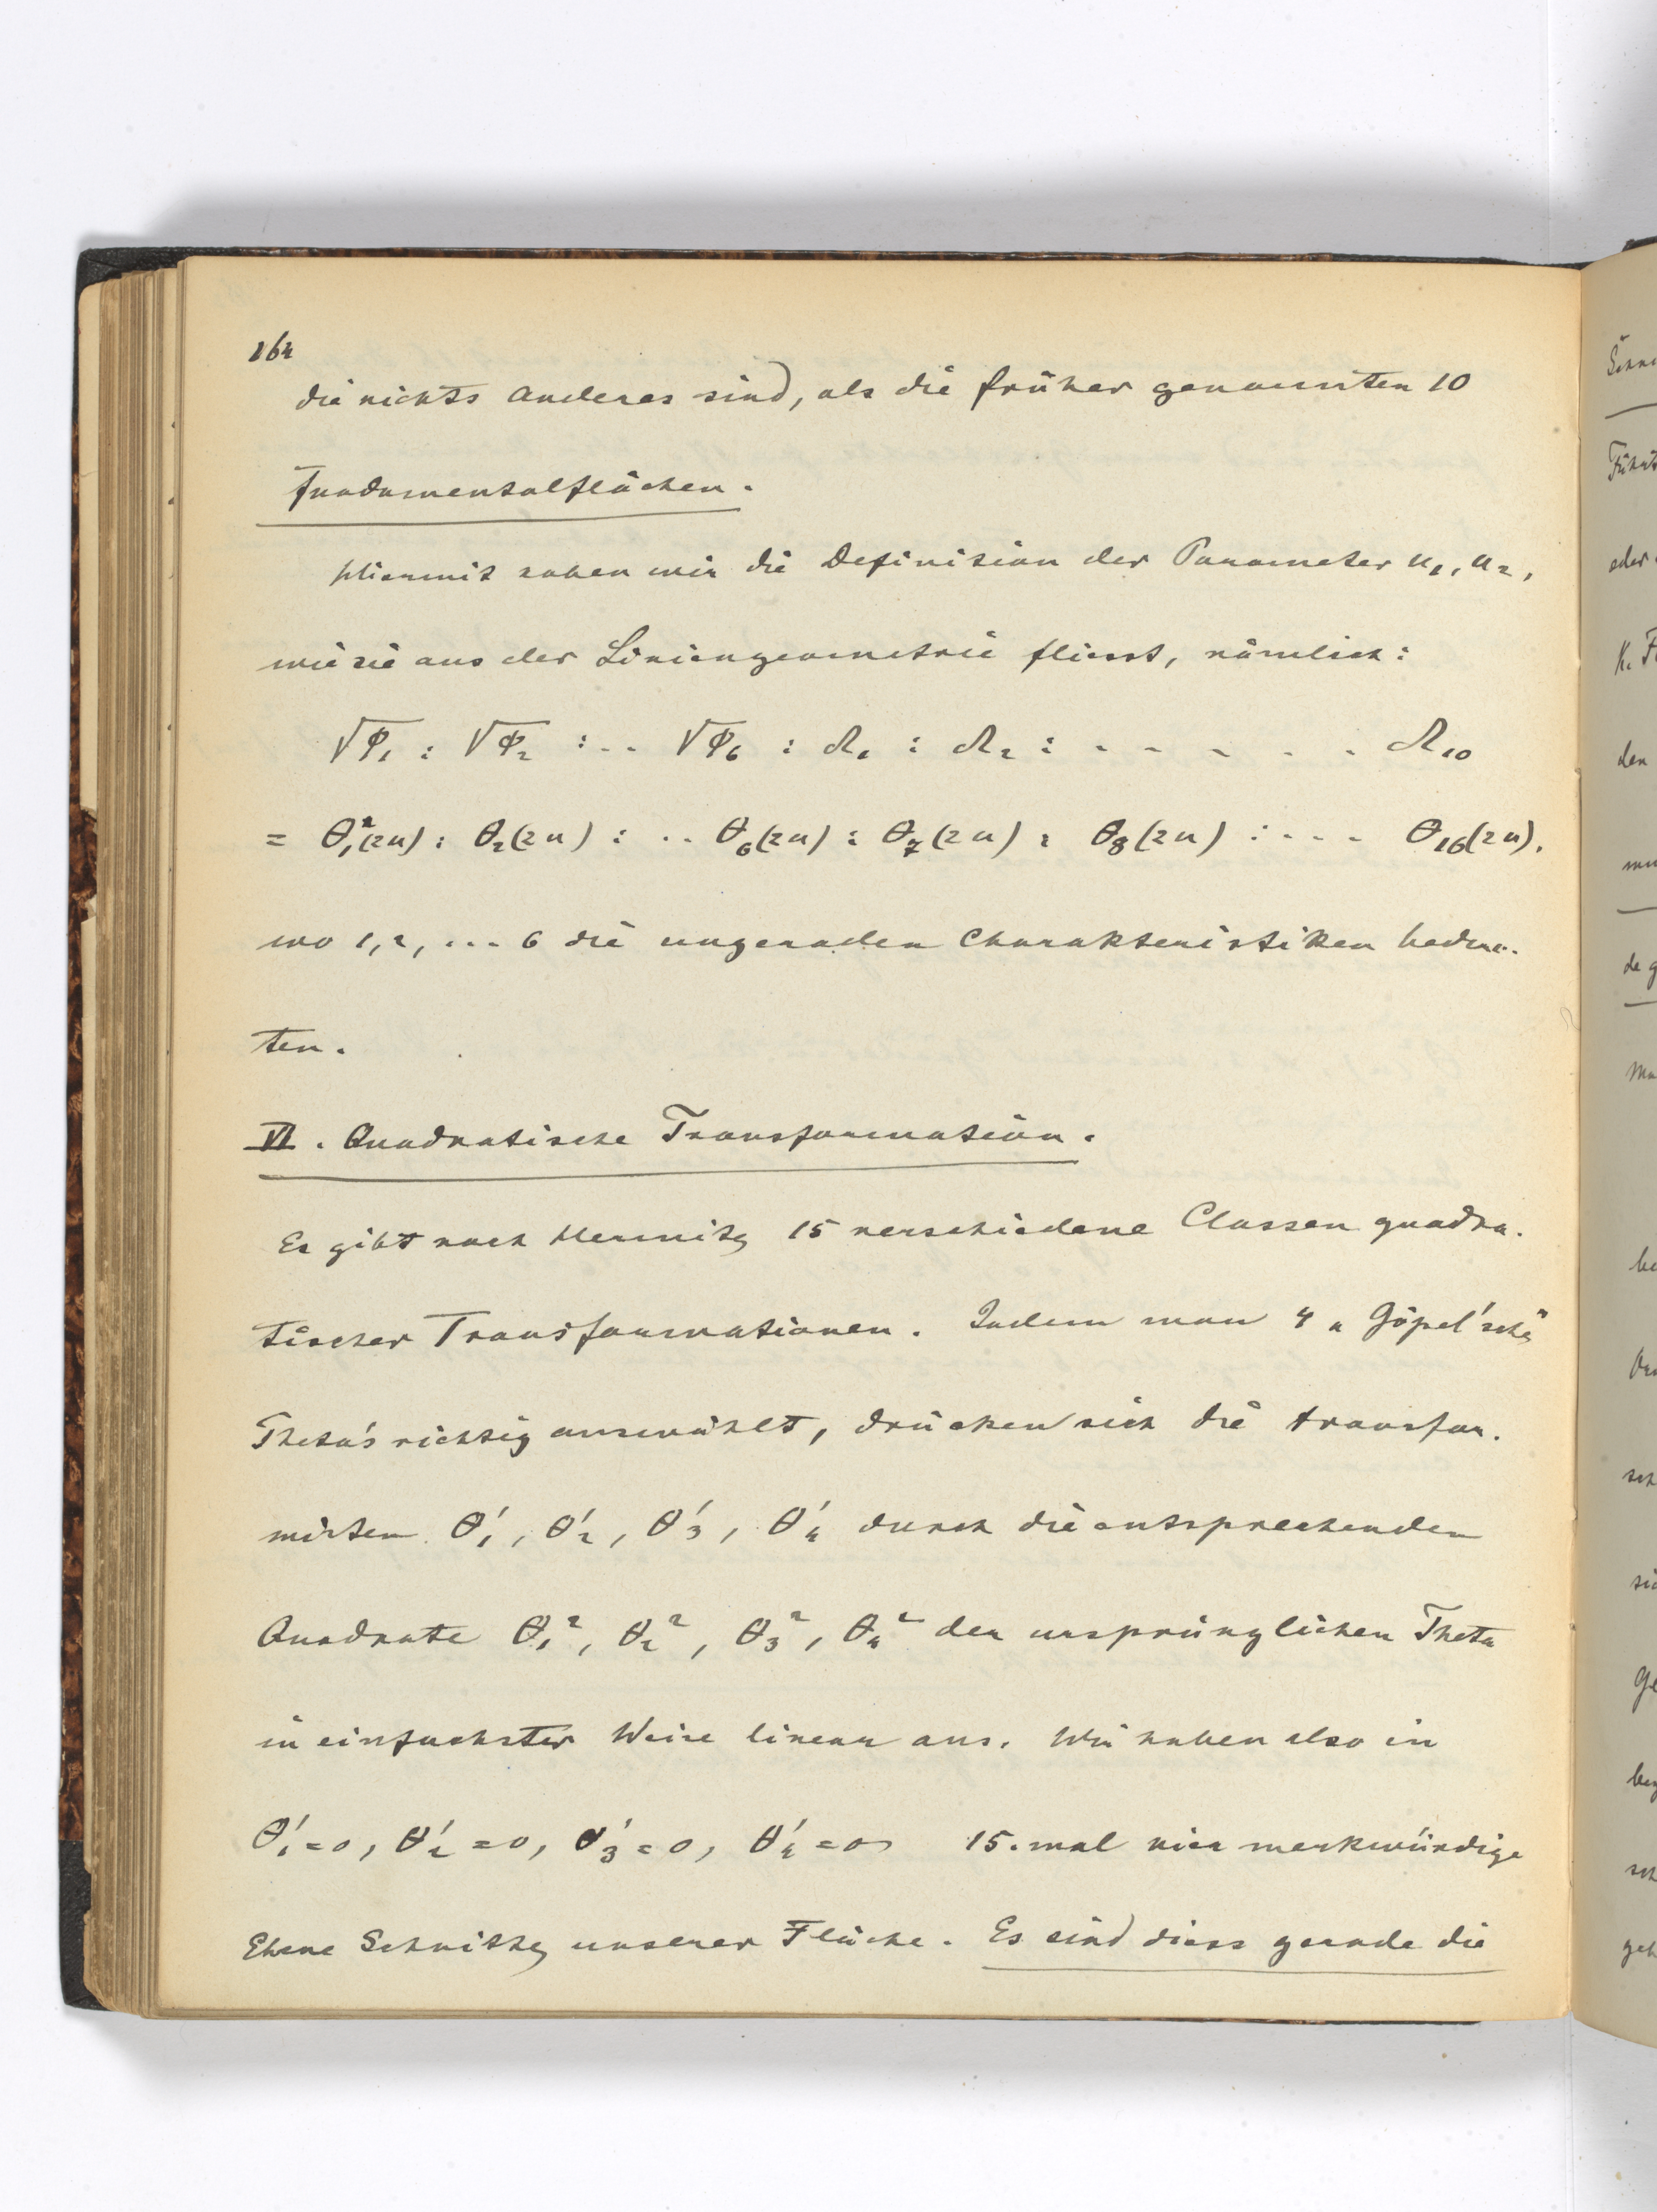 164
die nichts Anderes sind, als die früher genannten 10
Fundamentalflächen.
Hiermit haben wir die Definition der Parameter u₁, u₂,
wie sie aus der Liniengeometrie fliesst, nämlich:
√φ₁ : √φ₂ : .. √φ₆ : Ω₁ : Ω₂ : - - - - . . Ω₁₀
= θ₁²(2u) : θ₂(2u) : .. θ₆(2u) : θ₇(2u) : θ₈(2u) : - - - θ₁₆(2u).
wo 1, 2, ... 6 die ungeraden Charakteristiken bedeu-
ten.
VI. Quadratische Transformation.
Es gibt nach Hermite 15 verschiedene Classen quadra-
tischer Transformationen. Indem man 4 „Göpel'sche"
Theta's richtig auswählt, drücken sich die transfor-
mirten θ₁', θ₂', θ₃', θ₄' durch die entsprechenden
Quadrate θ₁², θ₂², θ₃², θ₄² der ursprünglichen Theta
in einfachster Weise linear aus. Wir haben also in
θ₁'=0, θ₂'=0, θ₃'=0, θ₄'=0 15. mal vier merkwürdige
Ebene Schnitte unserer Fläche. Es sind diess gerade die